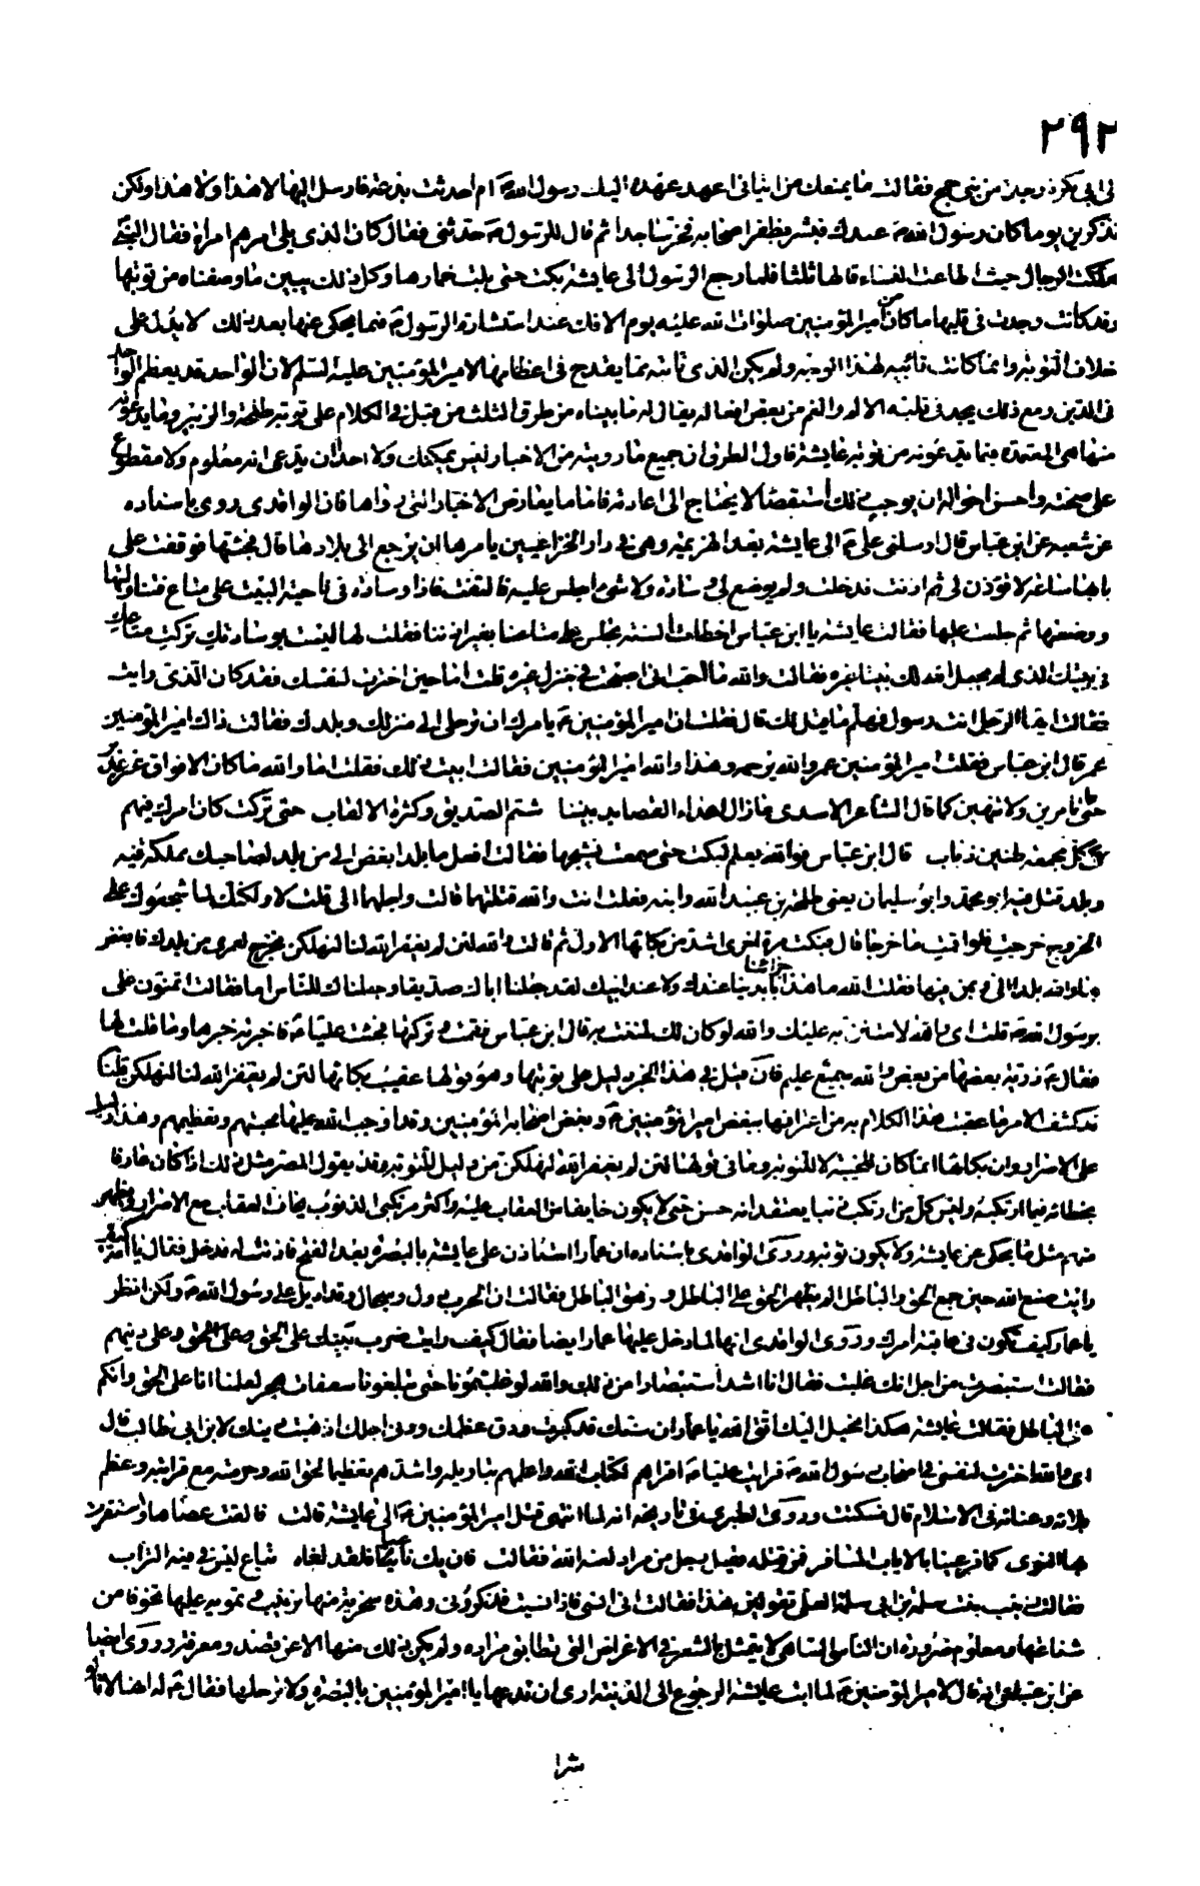 ٢٩٢
فقالت ما يمنعك من اتيانى اعهد عهده اليك رسول الله ام احدثت بدعة فارسل اليها لا هذا ولا هذا ولكن
تذكرين يوما كان رسول الله عندك فبشر بظفر اصحابه فخر ساجدا ثم قال للرسول حدثنى فقال كان الذى يلى امرهم امراة فقال النبى
هلكت الرجال حيث اطاعت النساء قالها ثلثا فلما رجع الرسول الى عايشة بكت حتى بلت خمارها وكل ذلك يبين ما وصفناه من توبتها
وقد كانت وجدت فى قلبها ما كان من امير المؤمنين صلوات الله عليه يوم الافك عند استشارة الرسول فما يحكى عنها بعد ذلك لا يدل على
خلاف التوبة وانما كانت تائبة لهذا الوجه ولم يكن الذى تاتيه مما يقدح فى اعظامها لامير المؤمنين عليه السلم لان الواحد قد يعظم الواحد
فى الدين ومع ذلك يجد فى قلبه الالم والغم من بعض افعاله يقال له ما بيناه من طرق الثلث من قبل فى الكلام على توبة طلحة والزبير وما يدعونه
منها هى المعتمدة فيما يدعونه من توبة عايشة فاول الطرق ان جميع ما رويته من الاخبار ليس يمكنك ولا احدا ان يدعى انه معلوم ولا مقطوع
على صحته واحسن احواله ان يوجب ذلك استقصاء لا يحتاج الى اعادته فاما ما يعارض الاخبار التى رواها فان الواقدى روى باسناده
عن شعبة عن ابن عباس قال ارسلنى على الى عايشة بعد الهزيمة وهى فى دار الخزاعيين يامرها ان ترجع الى بلادها قال فجئتها فوقفت على
بابها ساعة لا يؤذن لى ثم اذنت فدخلت ولم يوضع لى وسادة ولا شئ اجلس عليه فالتفت فاذا وسادة فى ناحية البيت على متاع فتناولتها
ووضعتها ثم جلست عليها فقالت عايشة يا ابن عباس اخطات السنة تجلس على متاعنا بغير اذننا فقلت لها ليست بوسادتك تركت متاعك
فى بيتك الذى لم يجعل الله لك بيتا غيره فقالت والله ما احب انى اصبحت فى منزل غيره قلت اما حين اخترت لنفسك فقد كان الذى رايت
فقالت ايها الرجل انت رسول فهلم ما قيل لك قال فقلت ان امير المؤمنين يامرك ان ترحلى الى منزلك وبلدك فقالت ذاك امير المؤمنين
عمر قال ابن عباس فقلت امير المؤمنين عمر والله يرحمه وهذا والله امير المؤمنين فقالت ابيت ذلك فقلت اما والله ما كان الا فواق
حتى ما تامرين ولا تنهين كما قال الشاعر الاسدى ما زال اهداء القصايد بيننا شتم الصديق وكثرة الالقاب حتى تركت كان امرك فيهم
فى كل مجمعة طنين ذباب قال ابن عباس فوالله يعلم لبكت حتى سمعت نشيجها فقالت افعل ما بلد ابغض الى من بلد لصاحبك مملكة فيه
وبلد قتل فيه ابو محمد وابو سليمان يعنى طلحة بن عبيد الله وابنه فقلت انت والله قتلتهما قالت واجلهما الى قلت لا ولكنك لما شجعوك على
الخروج خرجت فلو اقمت ما خرجا قال فبكت مرة اخرى اشد من بكائها الاول ثم قالت والله لئن لم يغفر الله لنا لنهلكن نخرج لعمرى من بلدك فابغض
بها والله بلدا الى وبمن فيها فقلت الله ما هذا جزائنا بايدينا عندك ولا عند ابيك لقد جعلنا اباك صديقا وجعلناك للناس اما فقالت اتمنون على
برسول الله قلت اى والله لامتنن به عليك والله لو كان لك لمننت به قال ابن عباس فقمت وتركتها فجئت عليا فاخبرته خبرها وما قلت لها
فقال ذرية بعضها من بعض والله سميع عليم فان قيل فى هذا الخبر دليل على توبتها وهو قولها عقيب بكائها لئن لم يغفر الله لنا لنهلكن قلنا
قد كشف الامر ما عقبت هذا الكلام به من اعترافها ببغض امير المؤمنين وبغض اصحابه المؤمنين وقد اوجب الله عليها محبتهم وتعظيمهم وهذا دليل
على الاصرار وان بكاءها انما كان للخيبة لا للتوبة وما فى قولها لئن لم يغفر الله لنهلكن من دليل للتوبة وقد يقول المصر مثل ذلك اذا كان عارفا
بخطائه فيما ارتكبه وليس كل من ارتكب ذنبا يعتقد انه حسن حتى لا يكون خايفا من العقاب عليه واكثر مرتكبى الذنوب يخاف العقاب مع الاصرار ويظهر
منهم مثل ما يحكى عن عايشة ولا يكون توبة وروى الواقدى باسناده ان عمارا استاذن على عايشة بالبصرة بعد الفتح فاذنت له فدخل فقال يا امه كيف
رايت صنع الله حين جمع الحق والباطل الم يظهر الحق على الباطل وزهق الباطل فقالت ان الحرب دول وسجال وقد اديل على رسول الله ولكن انظر
يا عمار كيف تكون فى عاقبة امرك وروى الواقدى انها لما دخل عليها عمار ايضا فقال كيف رايت ضرب بنيك على الحق وعلى دينهم
فقالت استبصرت من اجل انك غلبت فقال انا اشد استبصارا من ذلك والله لو غلبتمونا حتى تبلغونا سعفات هجر لعلمنا انا على الحق وانكم
على الباطل فقالت عايشة هكذا يخيل اليك اتق الله يا عمار ان سنك قد كبرت ودق عظمك ودنى اجلك اذهبت دينك لابن ابى طالب قال
اى والله اخترت لنفسى فى اصحاب رسول الله فرايت عليا اقراهم لكتاب الله واعلمهم بتاويله واشدهم تعظيما لحق الله وحرمته مع قرابته وعظم
بلائه وعنائه فى الاسلام قال فسكتت وروى الطبرى فى تاريخه انه لما انتهى قتل امير المؤمنين الى عايشة قالت فالقت عصاها واستقرت
بها النوى كما قر عينا بالاياب المسافر فمن قتله فقيل رجل من مراد لعنه الله فقالت فان يك نائيا فلقد نعاه نباع ليس فى فيه التراب
فقالت زينب بنت سلمة بن ابى سلمة العلى تقولين هذا فقالت انى انسى فاذا نسيت فذكرونى وهذه سخرية منها بزينب وتمويه عليها تخوفا من
شناعتها ومعلوم ضرورة ان الناس الساهى لا يتمثل بالشعر فى الاغراض التى تطابق مراده ولم يكن ذلك منها الا عن قصد ومعرفة وروى ايضا
عن ابن عباس انه قال لامير المؤمنين لما ابت عايشة الرجوع الى المدينة ارى ان تدعها يا امير المؤمنين بالبصرة ولا ترحلها فقال له انها لا تالو
شرا